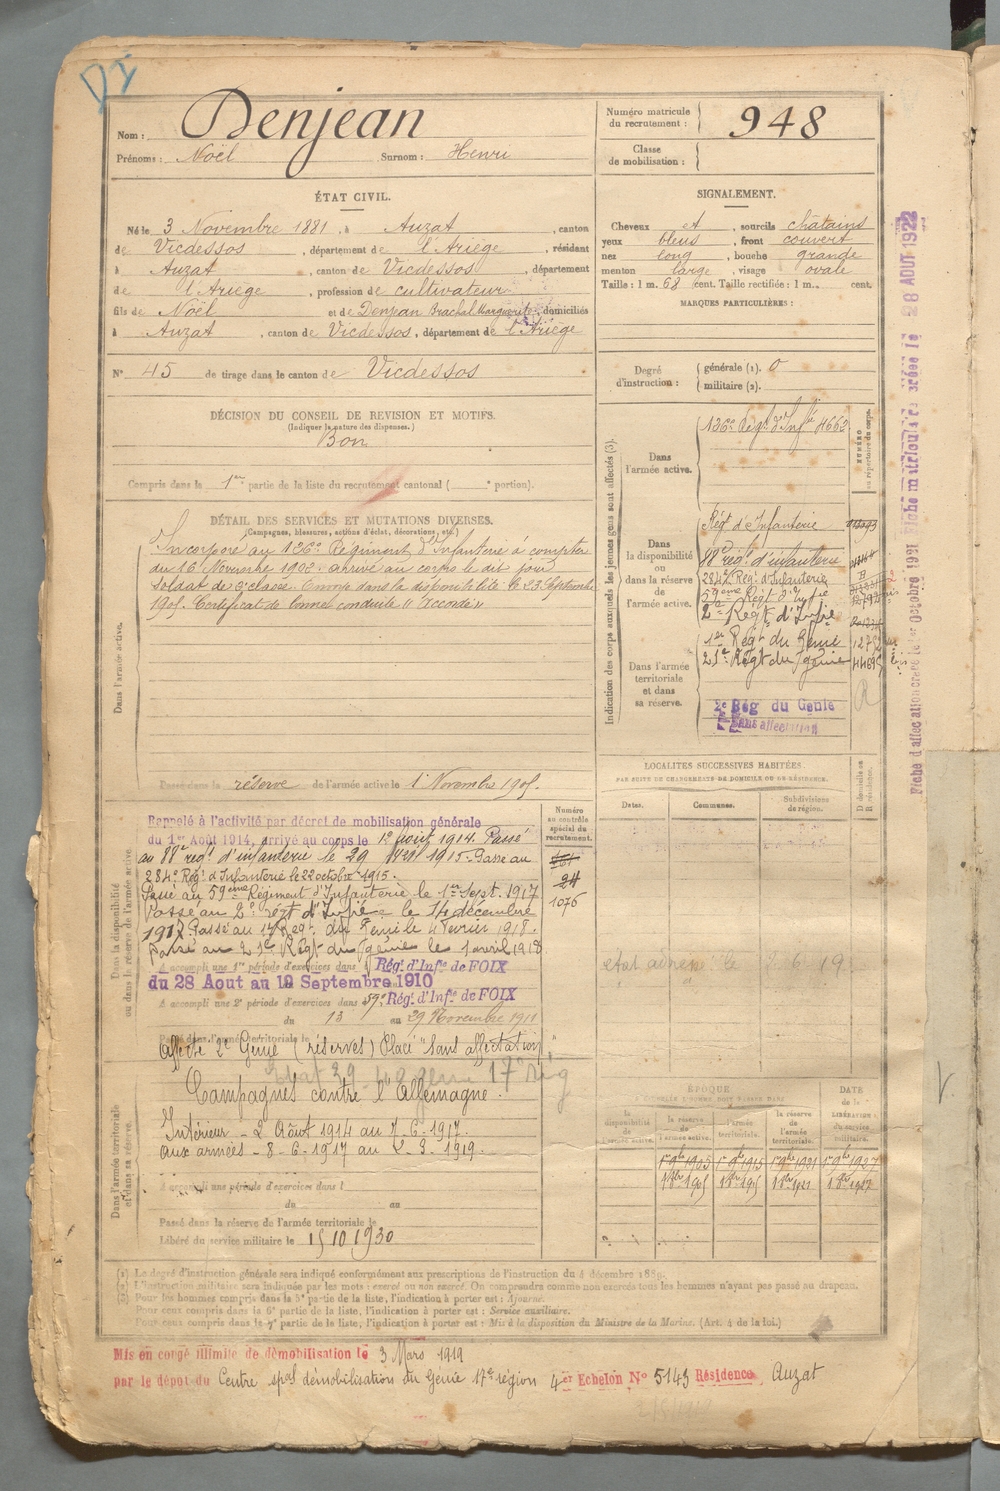 DI
Nom : Denjean
Prénoms : Noël Surnom : Henri
Numéro matricule du recrutement : 948
Classe de mobilisation :
ÉTAT CIVIL.
Né le 3 Novembre 1881, à Auzat, canton
de Vicdessos, département de l'Ariège, résidant
à Auzat, canton de Vicdessos, département
de l'Ariège, profession de cultivateur
fils de Noël et de Denjean Marguerite, domiciliés
à Auzat, canton de Vicdessos, département de l'Ariège
N° 45 de tirage dans le canton de Vicdessos
SIGNALEMENT.
Cheveux et, sourcils châtains
yeux bleus, front couvert
nez long, bouche grande
menton large, visage ovale
Taille : 1 m. 68 cent. Taille rectifiée : 1 m. cent.
MARQUES PARTICULIÈRES :
Degré d'instruction : générale (1). 0
militaire (2).
DÉCISION DU CONSEIL DE REVISION ET MOTIFS.
(Indiquer la nature des dispenses.)
Bon
Compris dans le 1re partie de la liste du recrutement cantonal ( portion).
DÉTAIL DES SERVICES ET MUTATIONS DIVERSES.
(Campagnes, blessures, actions d'éclat, décorations, etc.)
Incorporé au 126e Régiment d'Infanterie à compter
du 16 Novembre 1902. arrivé au corps le dit jour
soldat de 2e classe. Envoyé dans la disponibilité le 23 Septembre
1905. Certificat de bonne conduite "Accordé"
Dans l'armée active.
Passé dans la réserve de l'armée active le 1 Novembre 1905.
Indication des corps auxquels les jeunes gens sont affectés (3).
NUMÉRO au répertoire du corps.
Dans l'armée active.
126e Rég.t d'Inf.ie 4662
Dans la disponibilité ou dans la réserve de l'armée active.
Rég.t d'Infanterie
88e rég.t d'infanterie
284e Rég.t d'Infanterie
59eme Rég.t d'Inf.ie
2e Rég.t d'Inf.ie
1er Rég.t du Génie
21e Rég.t du génie
Dans l'armée territoriale et dans sa réserve.
2e Rég du Génie
Sans affectation
Fiche matricule créée le 28 AOUT 1922
LOCALITES SUCCESSIVES HABITÉES
PAR SUITE DE CHANGEMENTS DE DOMICILE OU DE RÉSIDENCE.
Dates. Communes. Subdivisions de région. D domicile ou R résidence.
Dans la disponibilité ou dans la réserve de l'armée active.
Numéro au contrôle spécial du recrutement.
Rappelé à l'activité par décret de mobilisation générale
du 1er Août 1914, arrivé au corps le 12 août 1914. Passé
au 88e rég.t d'infanterie le 29 1915. Passé au
284e Rég.t d'Infanterie le 22 octobre 1915.
Passé au 59eme Régiment d'Infanterie le 1er Sept. 1917
Passé au 2e Rég.t d'Infie le 14 décembre
1917. Passé au 1er Reg.t du Génie le 4 Février 1918.
passé au 21e Rég.t du génie le 1 avril 1918
1076
A accompli une 1re période d'exercices dans Rég.t d'Inf.ie de FOIX
du 28 Aout au 19 Septembre 1910
A accompli une 2e période d'exercices dans 59e Rég.t d'Inf.ie de FOIX
du 13 au 29 Novembre 1911
Passé dans l'armée territoriale le
Affecté 2e Génie (réserves) Placé "sans affectation"
Dans l'armée territoriale et dans sa réserve.
Campagnes contre l'Allemagne.
Intérieur - 2 Août 1914 au 7.6.1917.
aux armées - 8.6.1917 au 2.3.1919.
A accompli une période d'exercices dans l
du au
Passé dans la réserve de l'armée territoriale le
Libéré du service militaire le 15 10 1930
ÉPOQUE
la disponibilité de l'armée active. la réserve de l'armée active. l'armée territoriale. la réserve de l'armée territoriale.
DATE de la LIBÉRATION du service militaire.
1er 9bre 1905 1er 9bre 1915 1er 9bre 1921 1er 9bre 1927
(1) Le degré d'instruction générale sera indiqué conformément aux prescriptions de l'instruction du 4 décembre 1889.
(2) L'instruction militaire sera indiquée par les mots : exercé ou non exercé. On comprendra comme non exercés tous les hommes n'ayant pas passé au drapeau.
(3) Pour les hommes compris dans la 5e partie de la liste, l'indication à porter est : Ajourné.
Pour ceux compris dans la 6e partie de la liste, l'indication à porter est : Service auxiliaire.
Pour ceux compris dans la 7e partie de la liste, l'indication à porter est : Mis à la disposition du Ministre de la Marine. (Art. 4 de la loi.)
Mis en congé illimité de démobilisation le 3 Mars 1919
par le dépôt du Centre spal démobilisation du Génie 17e région 4er Echelon N° 5143 Résidence Auzat